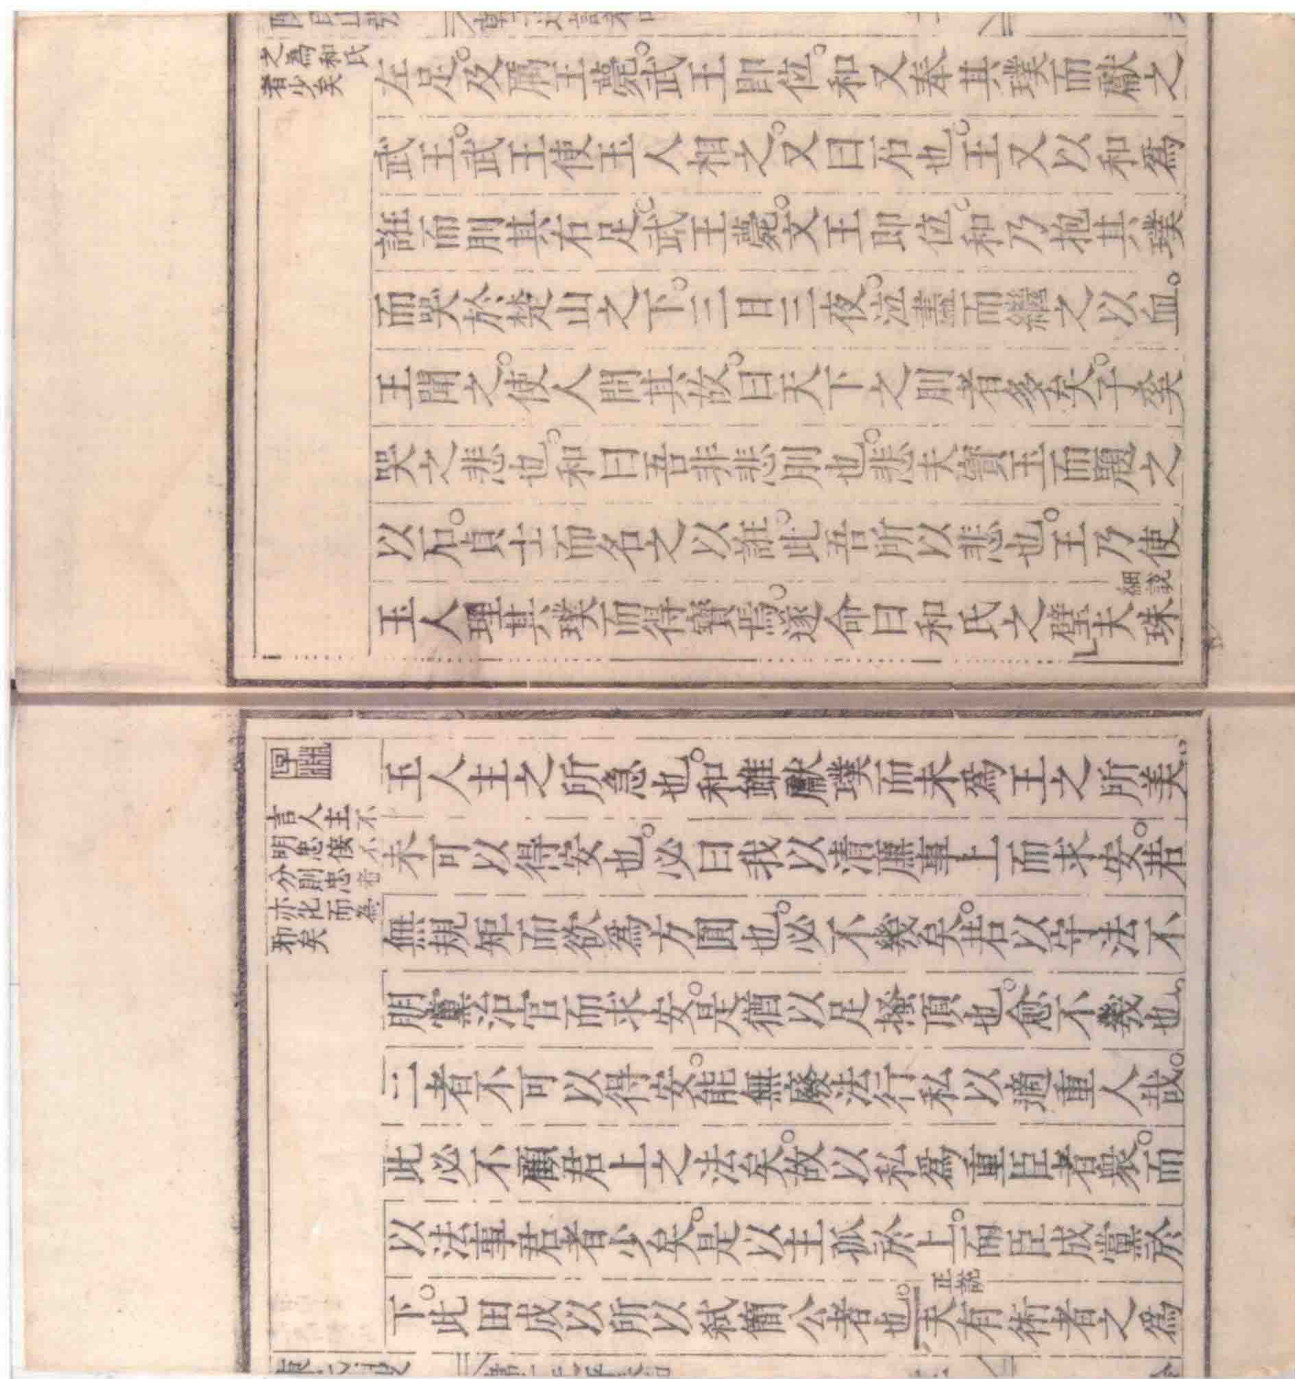 之為和氏
者少矣
左足。及厲王薨。武王即位。和又奉其璞而獻之
武王。武王使玉人相之。又曰石也。王又以和爲
誑而刖其右足。武王薨。文王即位。和乃抱其璞
而哭於楚山之下。三日三夜。泣盡而繼之以血。
王聞之。使人問其故。曰天下之刖者多矣。子奚
哭之悲也。和曰吾非悲刖也。悲夫寶玉而題之
以石。貞士而名之以誑。此吾所以悲也。王乃使
玉人理其璞而得寶焉。遂命曰和氏之璧夫珠
細說
言人主不
明忠佞不
分則忠者
亦化而為
邪矣
玉人主之所急也。和雖獻璞而未爲王之所美
未可以得安也。必曰我以清廉事上而求安。若
無規矩而欲爲方圓也。必不幾矣。若以守法不
朋黨治官而求安。是猶以足搔頂也。愈不幾也
二者不可以得安。能無廢法行私以適重人哉。
此必不顧君上之法矣。故以私爲重臣者衆。而
以法事君者少矣。是以主孤於上。而臣成黨於
下。此田成以所以弒簡公者也。夫有術者之爲
正說